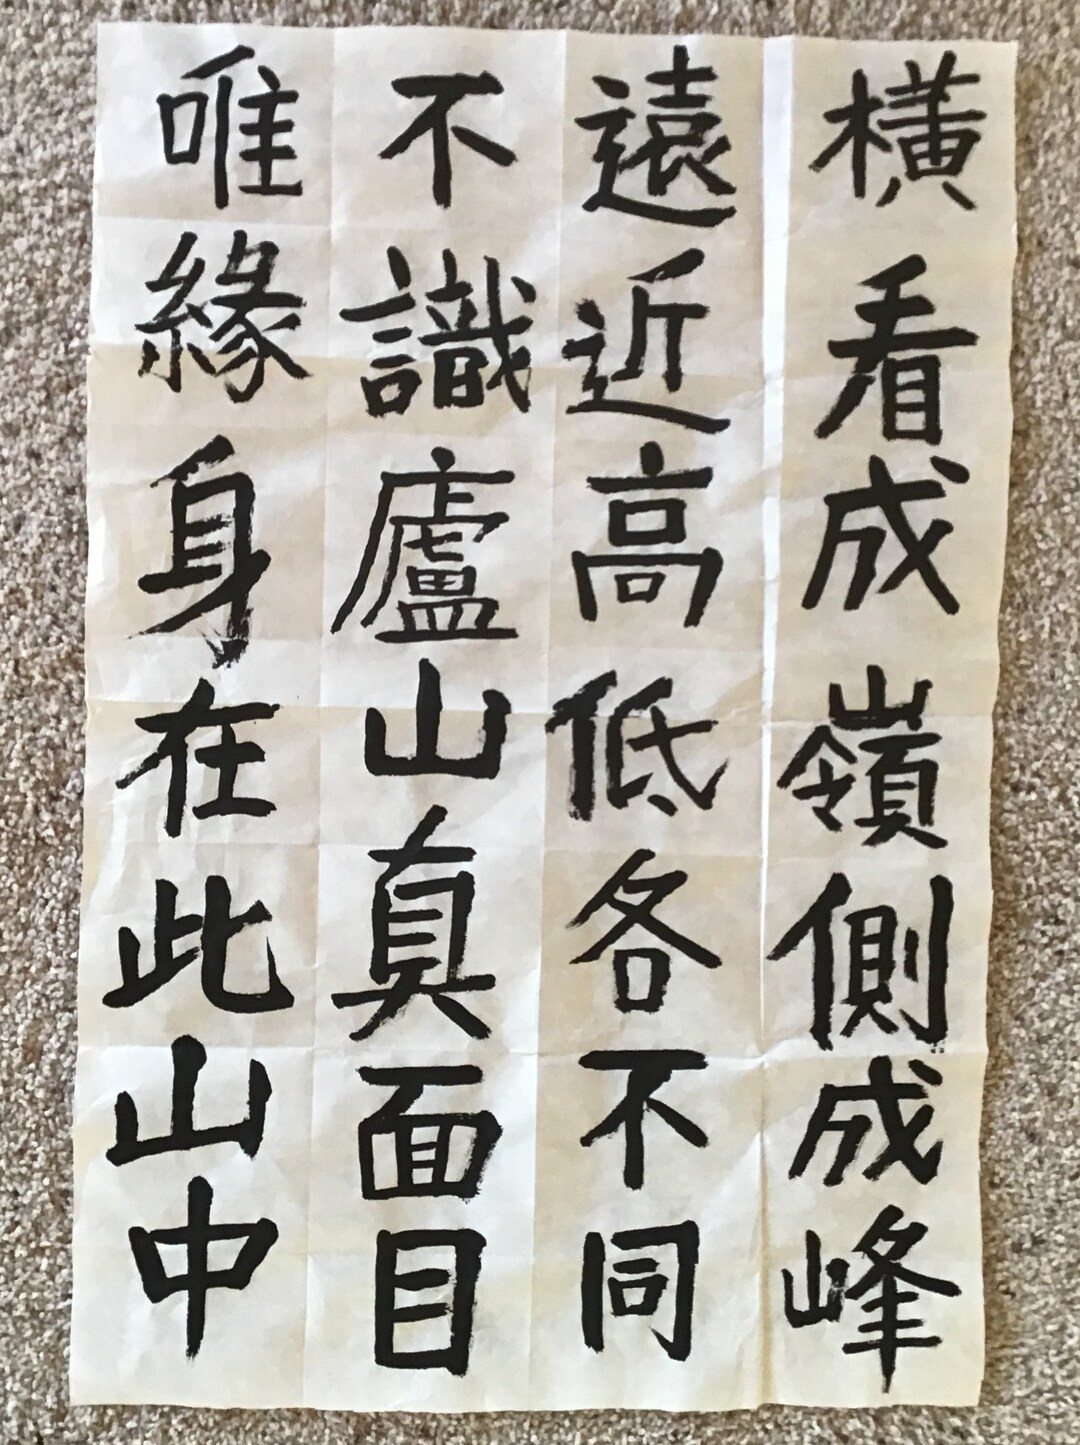 橫看成嶺側成峰
遠近高低各不同
不識廬山真面目
唯緣身在此山中